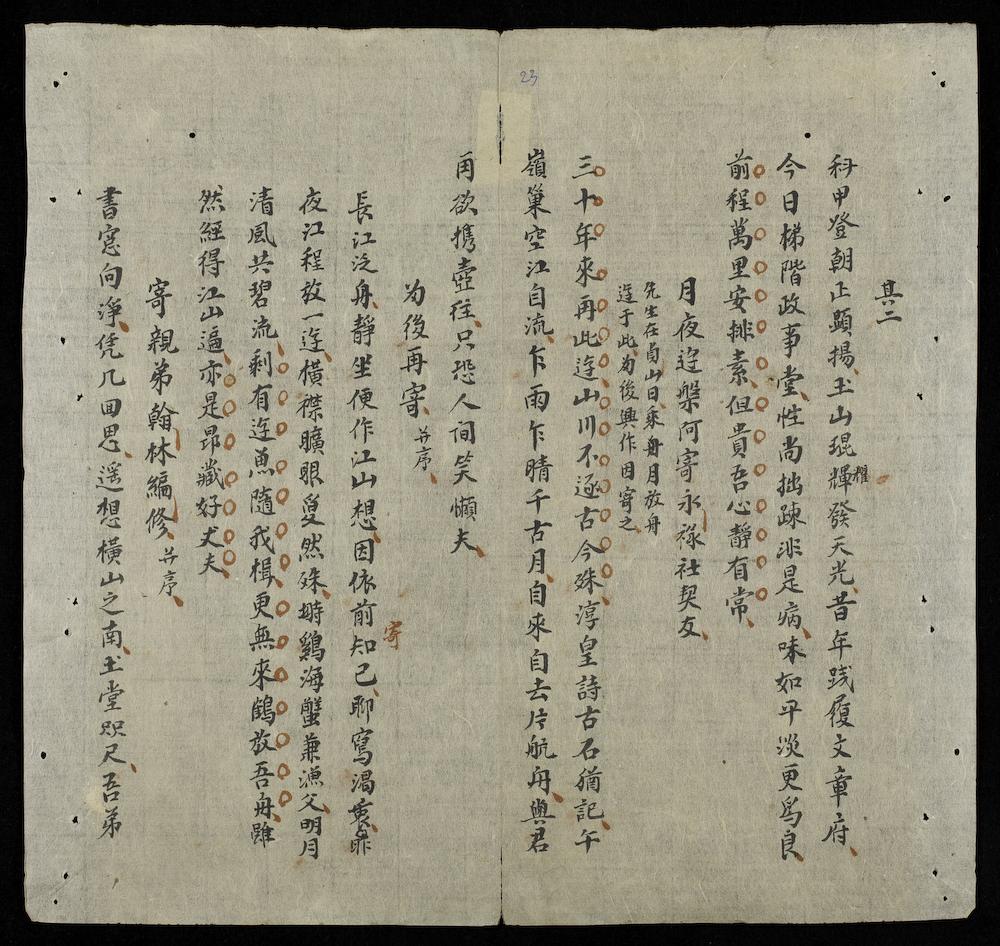 23
其二
科甲登朝正顯揚玉山琨耀輝發天光昔年践履文章府
今日梯階政事堂性尚拙疎非是病味如平淡更爲良
前程萬里安排素但貴吾心静有常
月夜遊槃阿寄永祿社契友
先生在貞山日乘舟月放舟
遊于此为後興作因寄之
三十年來再此遊山川不逐古今殊淳皇詩古石猶記午
嶺巢空江自流乍雨乍晴千古月自來自去片航舟與君
再欲携壺往只恐人间笑懶夫
为後再寄并序
長江泛舟靜坐便作江山想因依前知己聊寫渴衷寄
夜江程放一遊橫襟曠眼夐然殊塒鷄海蟹兼漁父明月
清風共碧流剩有遊魚隨我楫更無來鶴放吾舟雖
然經得江山逼亦是昂藏好丈夫
寄親弟翰林編修并序
書窓向淨凭几囬思遥想橫山之南玉堂咫尺吾弟